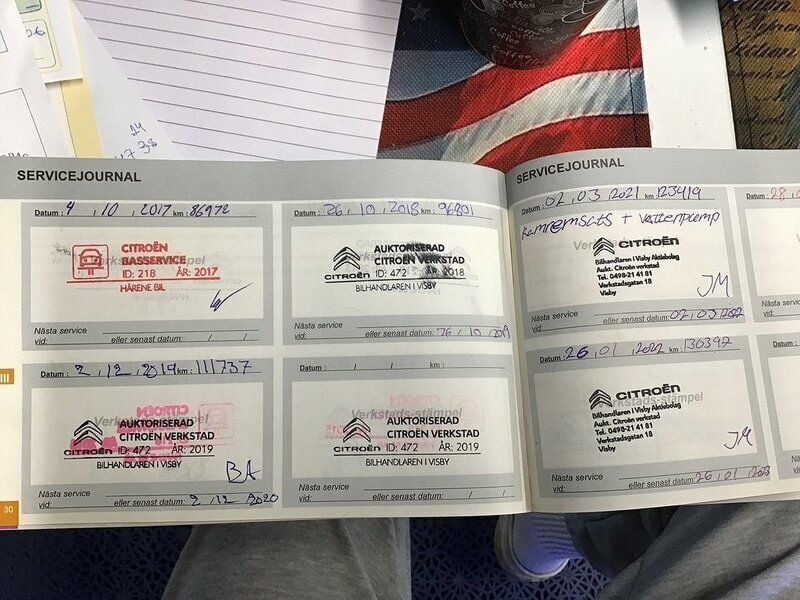 Coffee
SERVICEJOURNAL
Datum : 4 , 10 , 2017 km : 86972
CITROËN
BASSERVICE
ID: 218 ÅR: 2017
HÄRENE BIL
Verkstads-stämpel
Nästa service
vid: eller senast datum: / /
Datum : 26 , 10 , 2018 km : 96801
AUKTORISERAD
CITROËN VERKSTAD
CITROËN ID: 472 ÅR: 2018
BILHANDLAREN I VISBY
Nästa service
vid: eller senast datum: 26 , 10 , 2019
Datum : 2 , 12 , 2019 km : 111737
Verkstads-stämpel
AUKTORISERAD
CITROËN VERKSTAD
CITROËN ID: 472 ÅR: 2019
BILHANDLAREN I VISBY
BA
Nästa service
vid: eller senast datum: 2 , 12 , 2020
Datum : / / km :
Verkstads-stämpel
AUKTORISERAD
CITROËN VERKSTAD
CITROËN ID: 472 ÅR: 2019
BILHANDLAREN I VISBY
Nästa service
vid: eller senast datum: / /
30
SERVICEJOURNAL
Datum : 02 , 03 , 2021 km : 123419
Kamremsats + Vattenpump
CITROËN
Bilhandlaren i Visby Aktiebolag
Aukt. Citroën verkstad
Tel. 0498-21 41 81
Verkstadsgatan 18
Visby
JM
Nästa service
vid: eller senast datum: 02 / 03 / 2022
Datum : 26 , 01 , 2022 km : 136397
CITROËN
Bilhandlaren i Visby Aktiebolag
Aukt. Citroën verkstad
Tel. 0498-21 41 81
Verkstadsgatan 18
Visby
JM
Nästa service
vid: eller senast datum: 26 / 01 / 2023
Datum : 28
Nästa
vid: